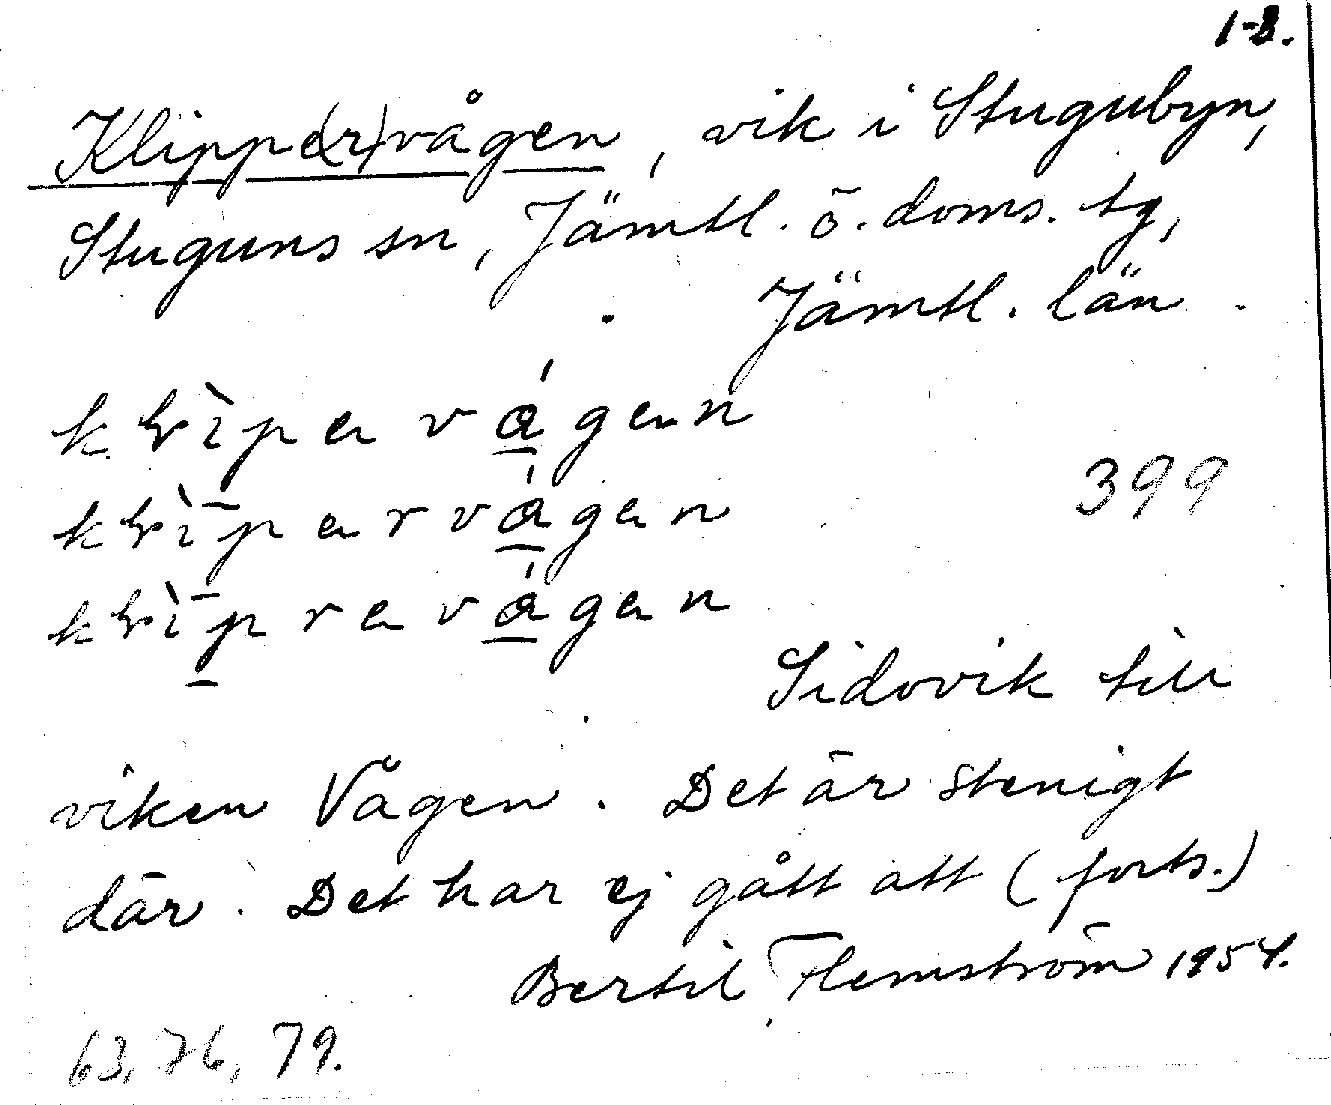 1-2.
Klippe(r)vågen, vik i Stugubyn,
Stuguns sn, Jämtl. ö. doms. tg,
Jämtl. län.
399
Sidovik till
viken Vågen. Det är stenigt
där. Det har ej gått att (forts.)
Bertil Flemström 1954.
63, 76, 79.